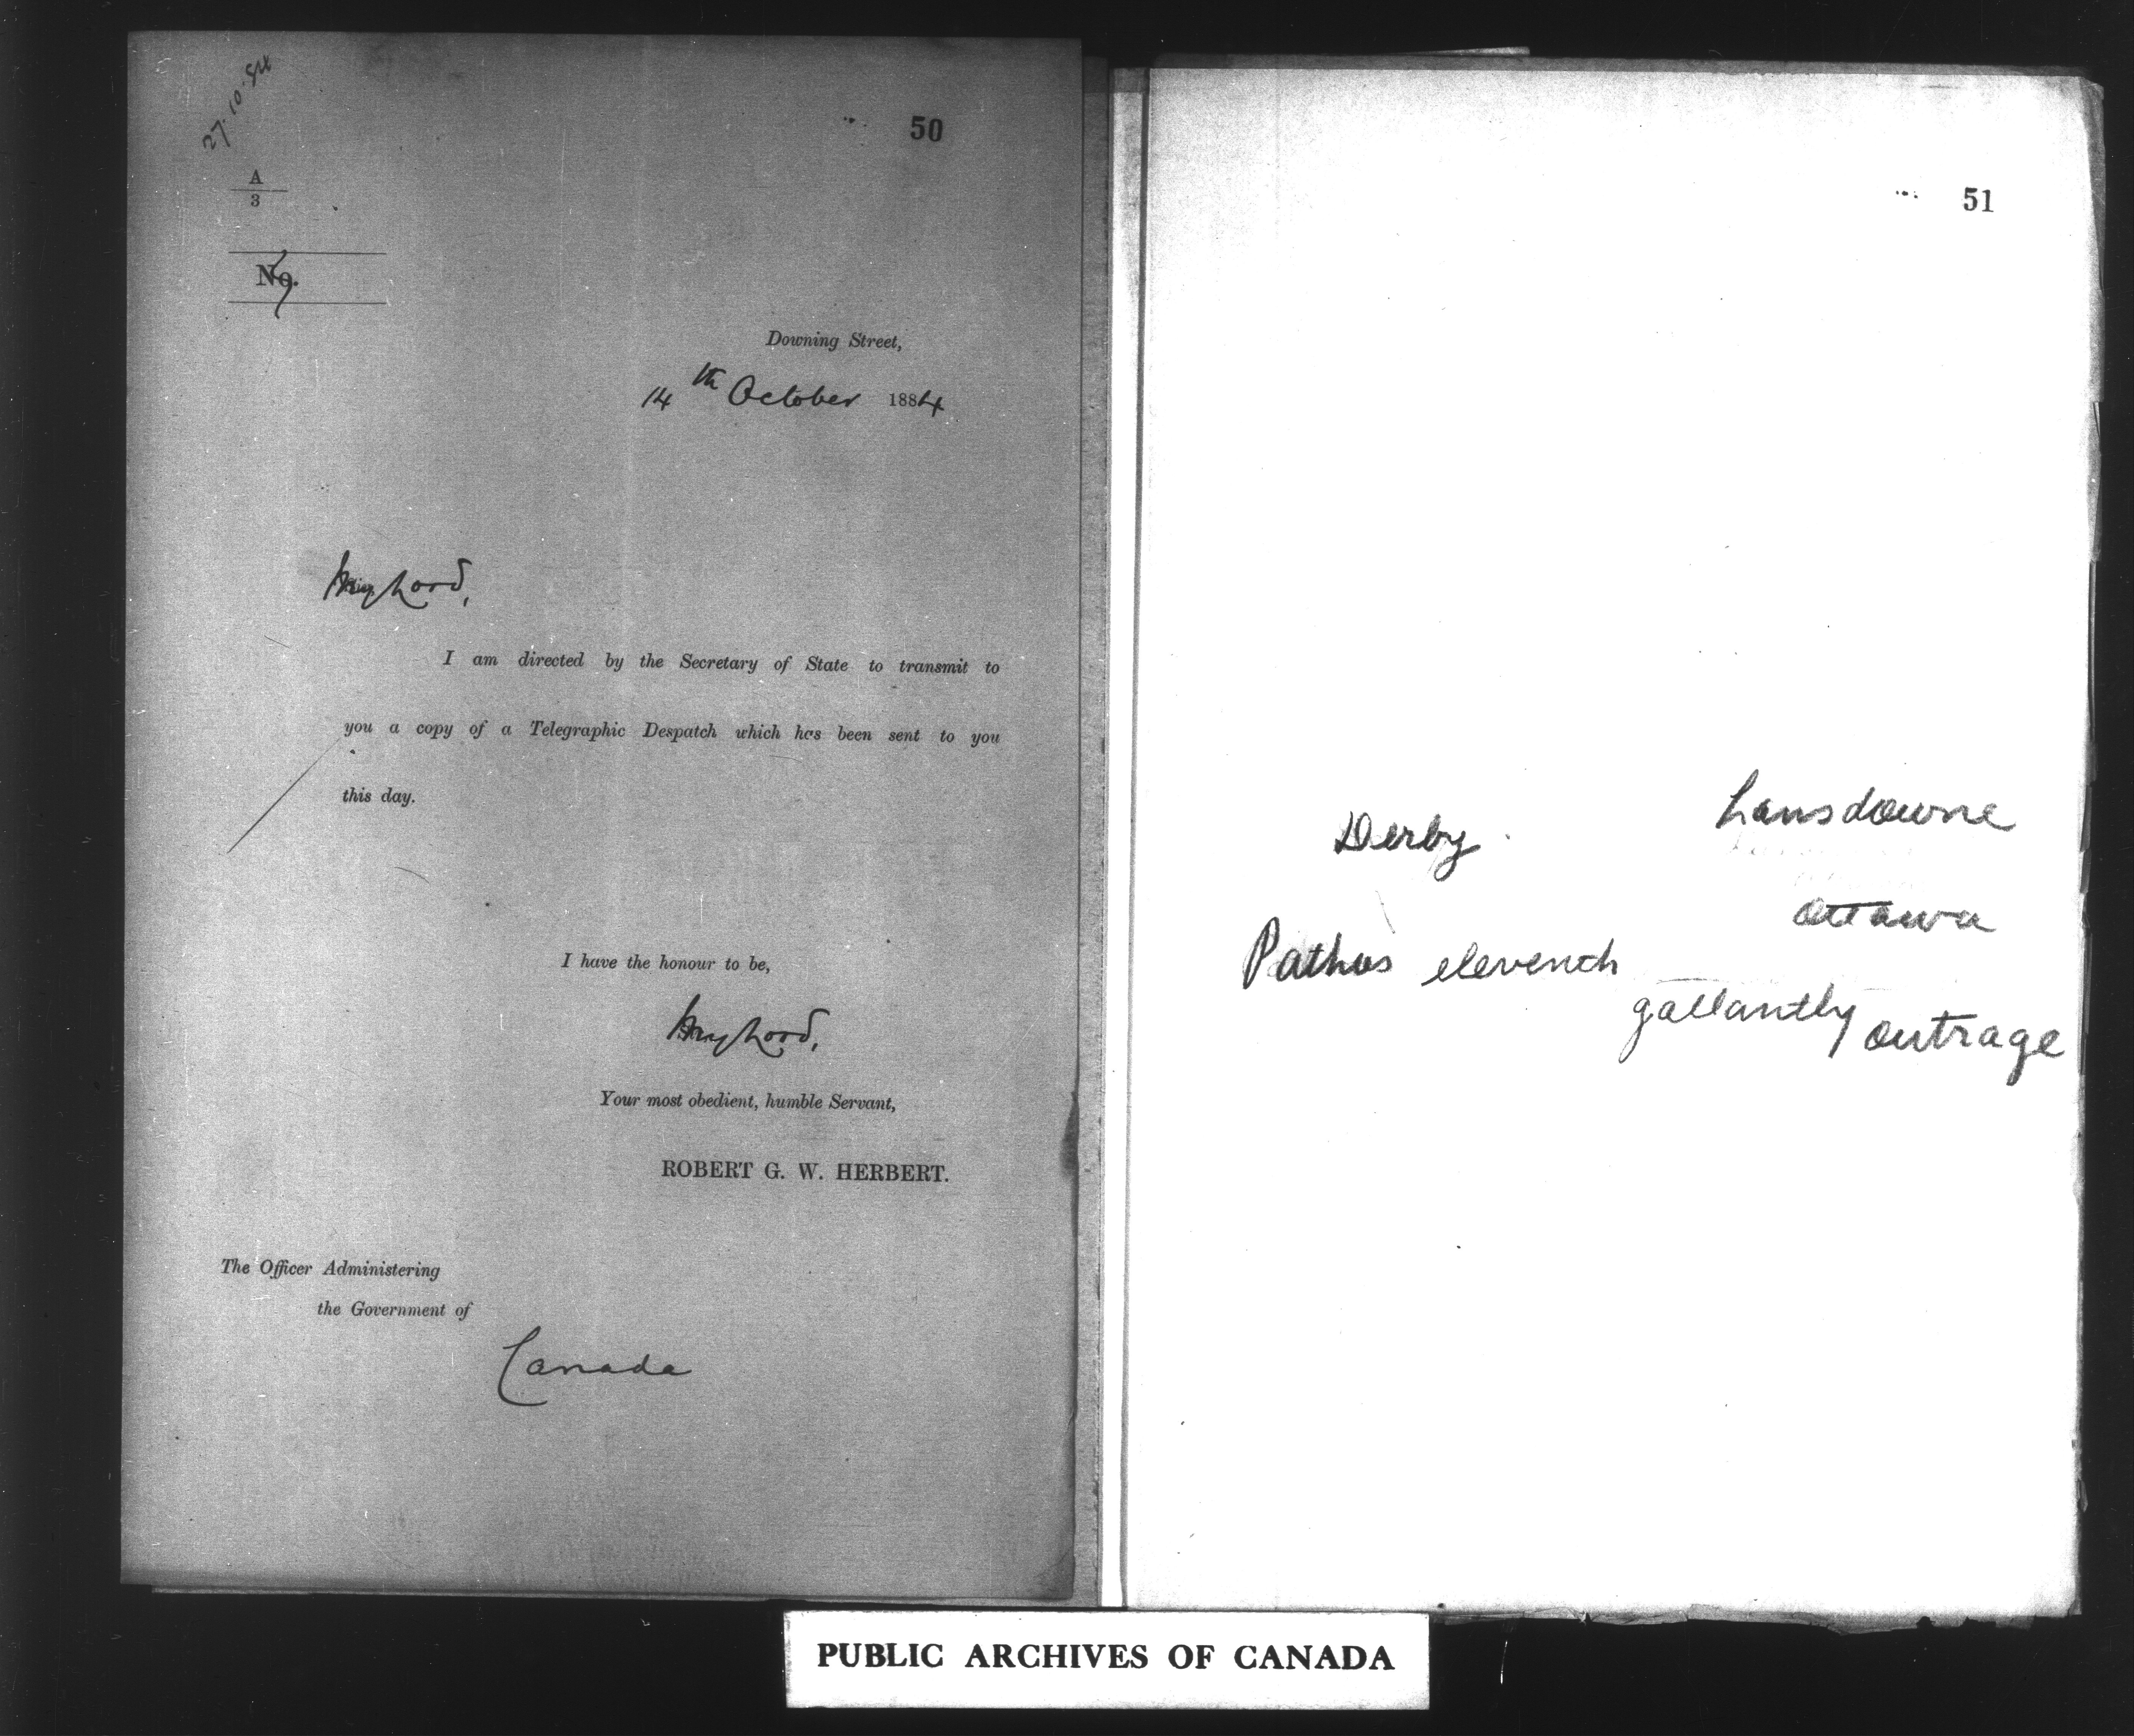 27.10.84
50
A
3
No.
Downing Street,
14th October 1884
My Lord,
I am directed by the Secretary of State to transmit to
you a copy of a Telegraphic Despatch which has been sent to you
this day.
I have the honour to be,
My Lord,
Your most obedient, humble Servant,
ROBERT G. W. HERBERT.
The Officer Administering
the Government of
Canada
51
Derby
Lansdowne
Ottawa
Pathos elevench
gallantly outrage
PUBLIC ARCHIVES OF CANADA